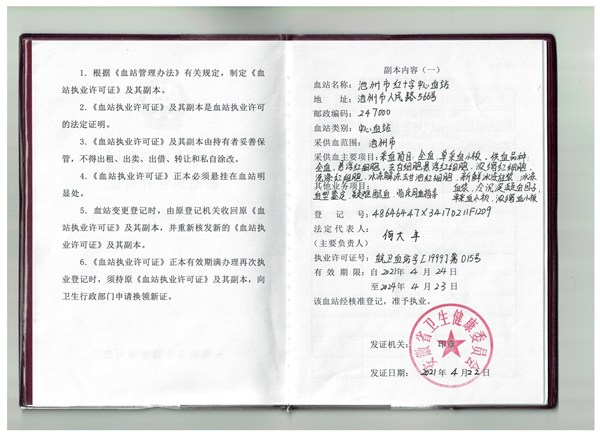 1. 根据《血站管理办法》有关规定，制定《血
站执业许可证》及其副本。
2.《血站执业许可证》及其副本是血站执业许可
的法定证明。
3.《血站执业许可证》及其副本由持有者妥善保
管，不得出租、出卖、出借、转让和私自涂改。
4.《血站执业许可证》正本必须悬挂在血站明
显处。
5. 血站变更登记时，由原登记机关收回原《血
站执业许可证》及其副本，并重新核发新的《血站执
业许可证》及其副本。
6.《血站执业许可证》正本有效期满办理再次执
业登记时，须持原《血站执业许可证》及其副本，向
卫生行政部门申请换领新证。
副本内容（一）
血站名称：池州市红十字中心血站
地 址：池州市人民路566号
邮政编码：247000
血站类别：中心血站
采供血范围：池州市
采供血主要项目：采血项目：全血，单采血小板，供血品种：
全血，悬浮红细胞，去白细胞悬浮红细胞，浓缩红细胞，
洗涤红细胞，冰冻解冻去甘油红细胞，新鲜冰冻血浆，冰冻
血浆，冷沉淀凝血因子，
单采血小板，浓缩血小板
其他业务项目：
血型鉴定，疑难配血
登 记 号：48646447X34170211F1209
法定代表人：何大丰
（主要负责人）
执业许可证号：皖卫血站字[1999]第015号
有 效 期 限：自 2021年 4 月 24日
至2024年 4 月 23 日
该血站经核准登记，准予执业。
安徽省卫生健康委员会
发证机关：
发证日期： 2021年 4 月 22日